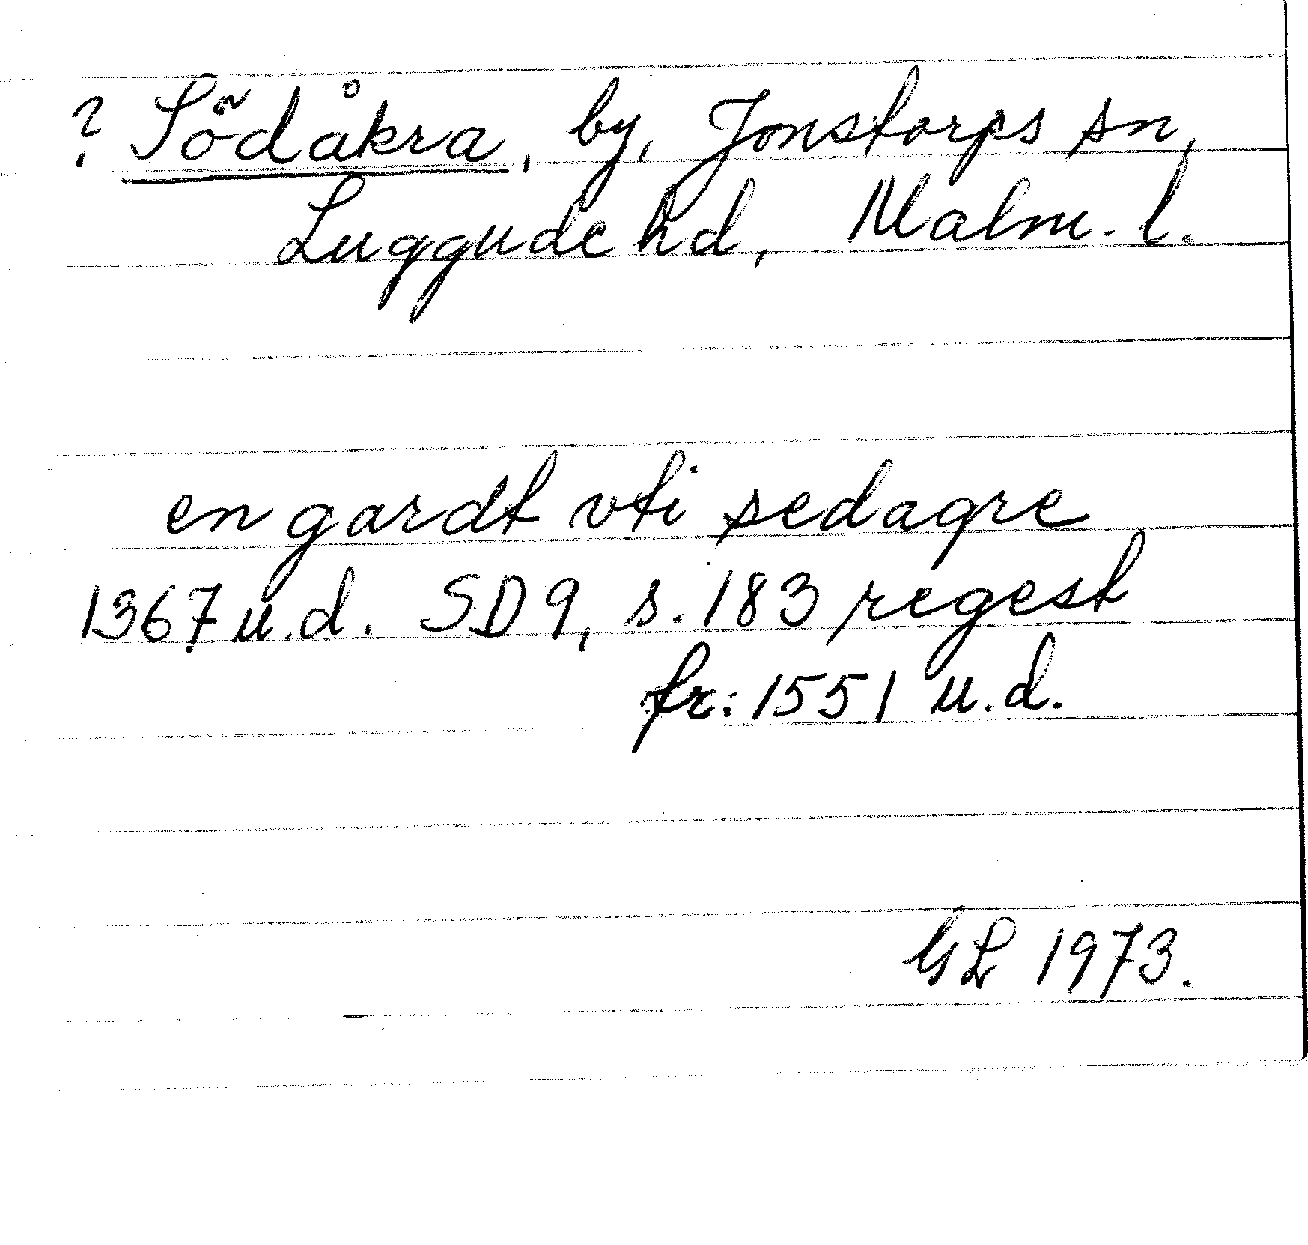 ? Södåkra, by, Jonstorps sn,
Luggude hd, Malm. l.
en gardt vti sedagre
1367 u.d. SD 9, s. 183 regest
fr: 1551 u.d.
GL 1973.